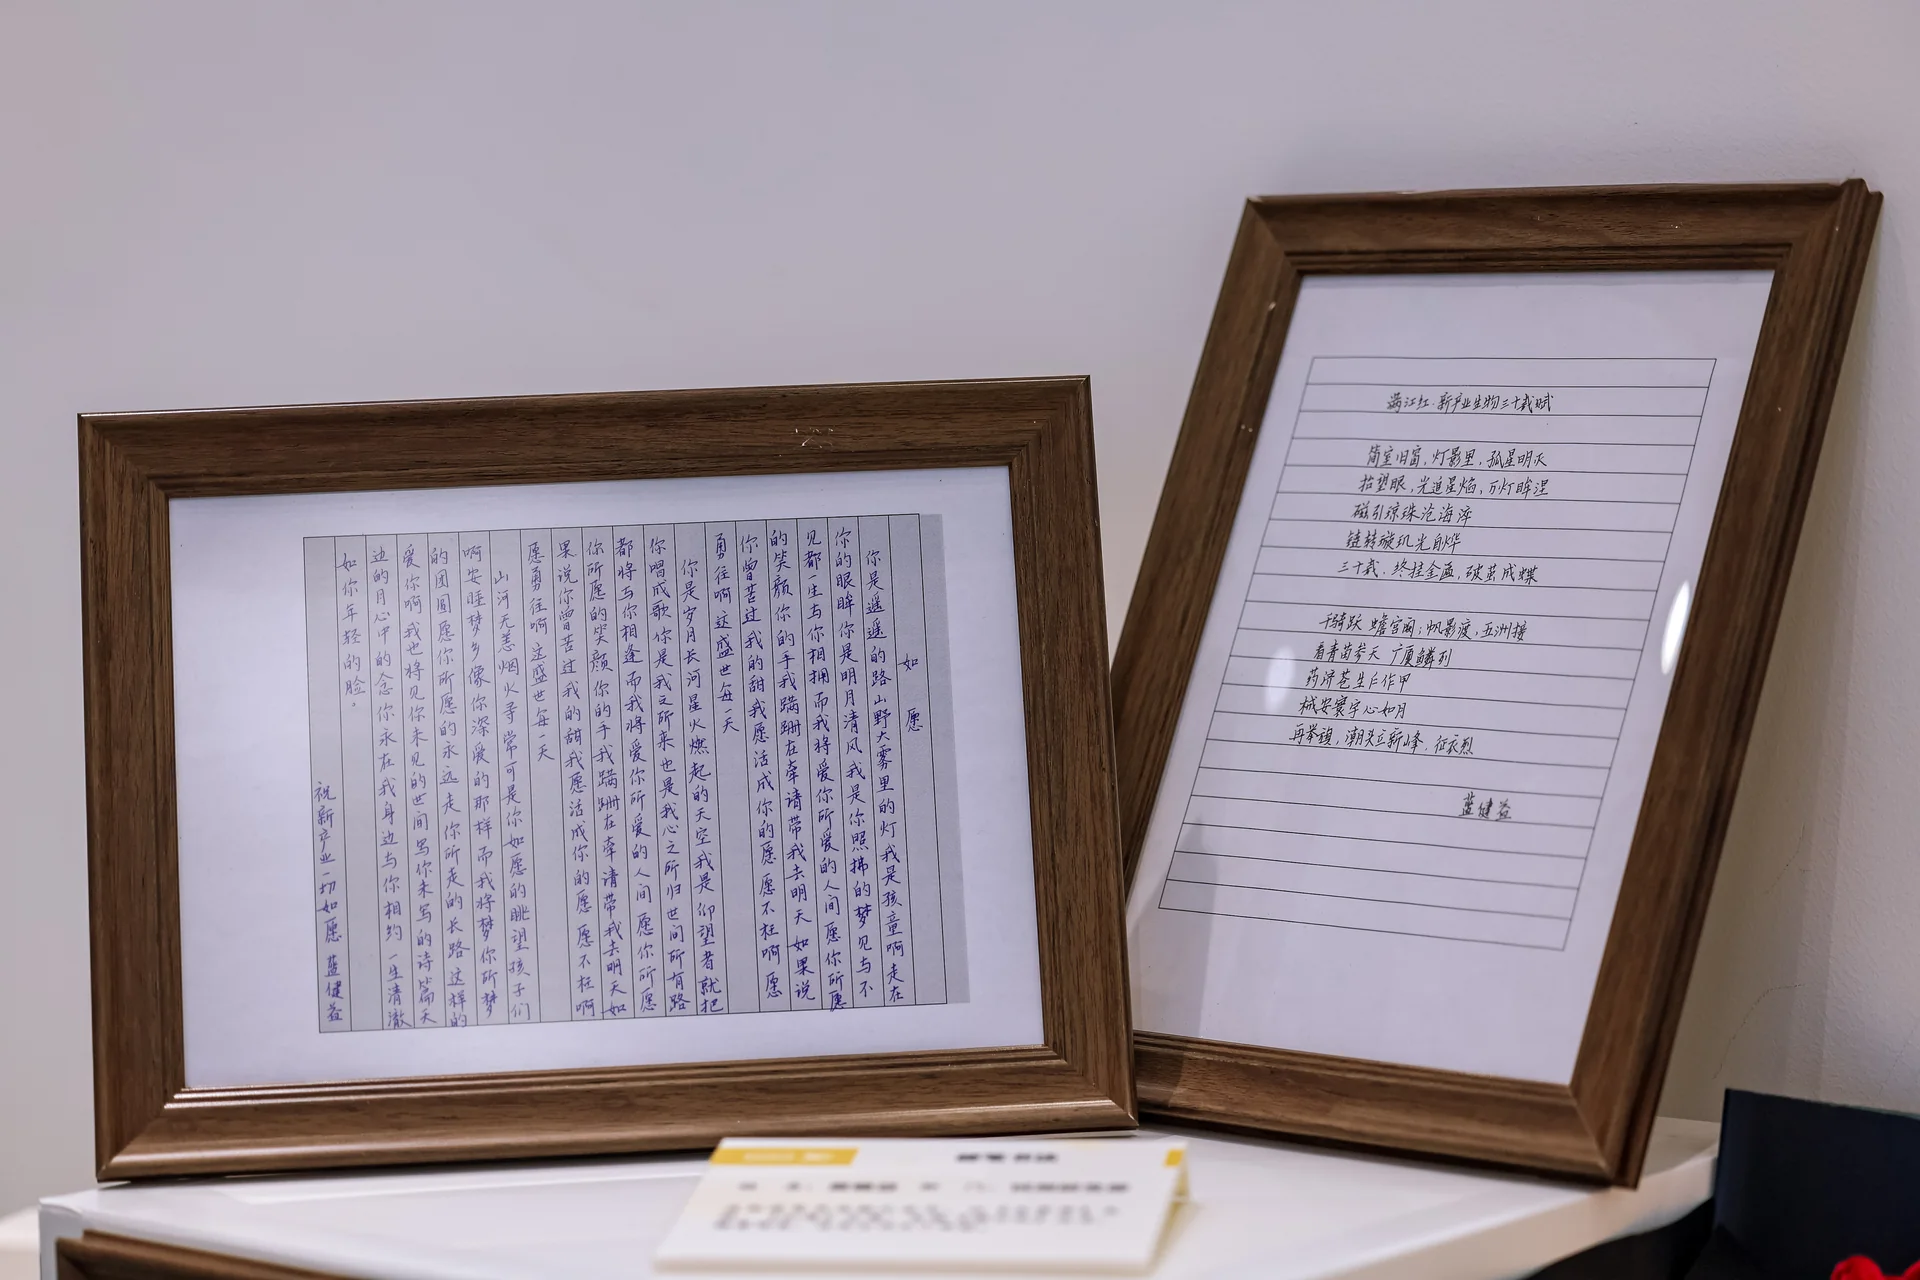 如愿
你是遥遥的路山野大雾里的灯我是孩童啊走在
你的眼眸你是明月清风我是你照拂的梦见与不
见都一生与你相拥而我将爱你所爱的人间愿你所愿
的笑颜你的手我蹒跚在牵请带我去明天如果说
你曾苦过我的甜我愿活成你的愿愿不枉啊愿
勇往啊这盛世每一天
你是岁月长河星火燃起的天空我是仰望者就把
你唱成歌你是我之所来也是我心之所归世间所有路
都将与你相逢而我将爱你所爱的人间愿你所愿
你所愿的笑颜你的手我蹒跚在牵请带我去明天如
果说你曾苦过我的甜我愿活成你的愿愿不枉啊
愿勇往啊这盛世每一天
山河无恙烟火寻常可是你如愿的眺望孩子们
啊安睡梦乡像你深爱的那样而我将梦你所梦
的团圆愿你所愿的永远走你所走的长路这样的
爱你啊我也将见你未见的世间写你未写的诗篇天
边的月心中的念你永在我身边与你相约一生清澈
如你年轻的脸。
祝新产业一切如愿 蓝健益
满江红·新产业生物三十载赋
简室旧窗,灯影里,孤星明灭
抬望眼,光追星焰,万灯眸涅
磁引琼珠沧海淬
链转璇玑光自烨
三十载,终挂金匾,破茧成蝶
千骑跃 蟾宫阙;帆影渡,五洲接
看青苗参天 广厦鳞列
药济苍生仁作甲
械安寰宇心如月
再举镜,潮头立新峰,征衣烈
蓝健益